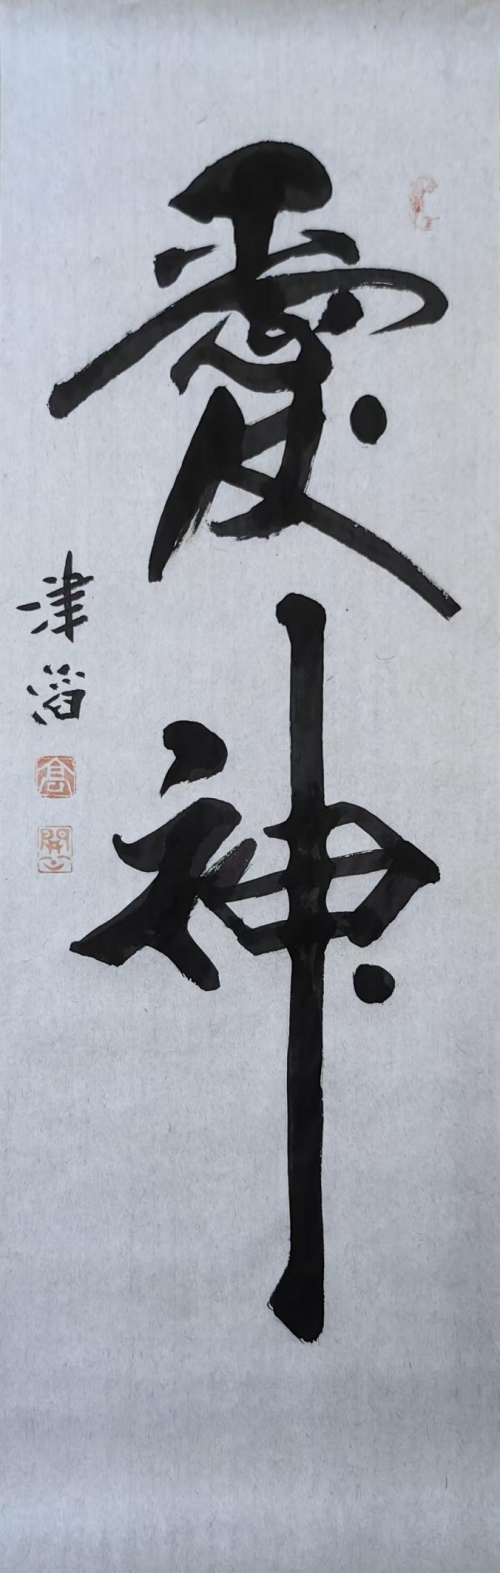 愛神
津滔